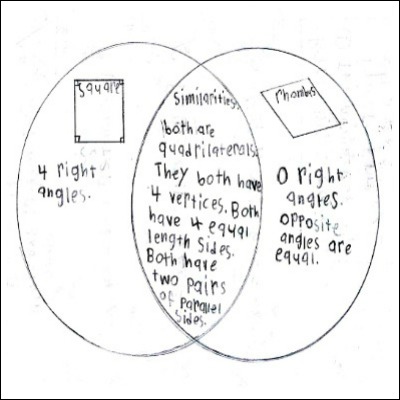 square
4 right
angles.
Similarities.
both are
quadrilaterals.
They both have
4 vertices. Both
have 4 equal
length sides.
Both have
two pairs
of parallel
sides.
rhombus
0 right
angles.
opposite
angles are
equal.